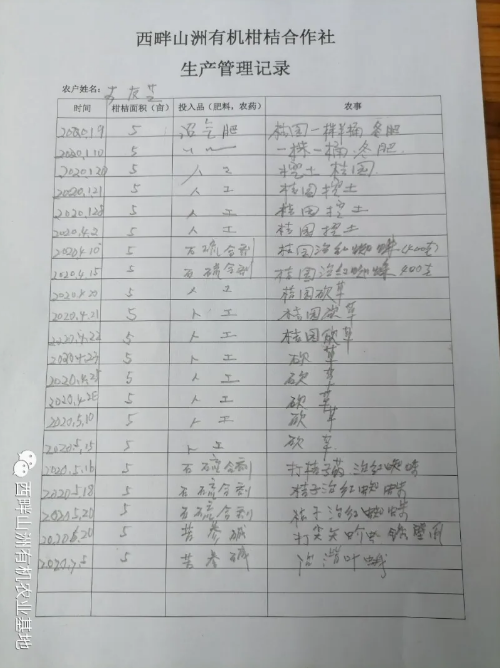 西畔山洲有机柑桔合作社
生产管理记录
农户姓名:
时间 柑桔面积(亩) 投入品(肥料,农药) 农事
2020.1.9 5 沼气肥 桔园一株半桶冬肥
2020.1.10 5 一株一桶冬肥
2020.1.20 5 人工 挖土 桔园
2020.1.21 5 人工 桔园挖土
2020.1.28 5 人工 桔园挖土
2020.4.2 5 人工 桔园挖土
2020.4.10 5 石硫合剂 桔园治红蜘蛛(400克)
2020.4.15 5 石硫合剂 桔园治红蜘蛛 400克
2020.4.20 5 人工 桔园砍草
2020.4.21 5 人工 桔园砍草
2020.4.22 5 人工 桔园砍草
2020.4.23 5 人工 砍草
2020.4.25 5 人工 砍草
2020.4.28 5 人工 砍草
2020.5.10 5 人工 砍草
2020.5.15 5 人工 砍草
2020.5.16 5 石硫合剂 打桔子药治红蜘蛛
2020.5.18 5 石硫合剂 桔子治红蜘蛛
2020.5.20 5 石硫合剂 桔子治红蜘蛛
2020.6.20 5 苦参碱
2020.7.5 5 苦参碱 治潜叶蛾
西畔山洲有机农业基地